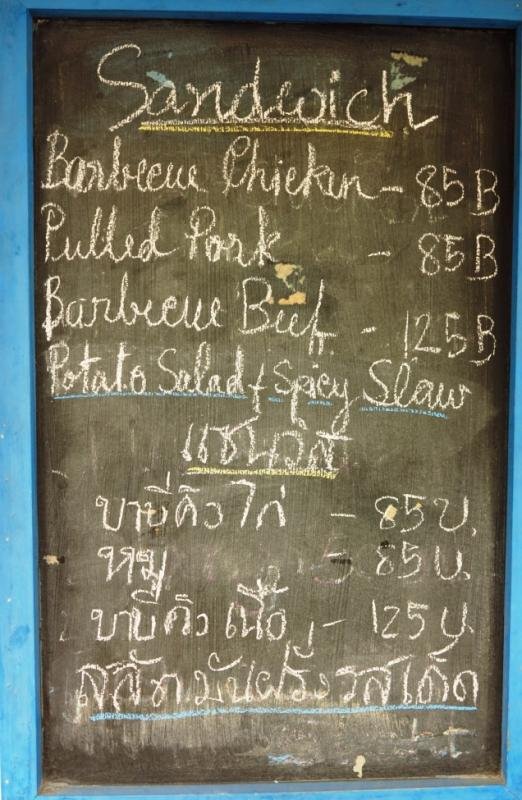 Sandwich
Barbecue Chicken - 85 B
Pulled Pork - 85 B
Barbecue Beef - 125 B
Potato Salad + Spicy Slaw
แซนวิส
บาบีคิวไก่ - 85 บ.
หมู 85 บ.
บาบีคิวเนื้อ - 125 บ.
สลัดมันฝรั่งรสเด็ด